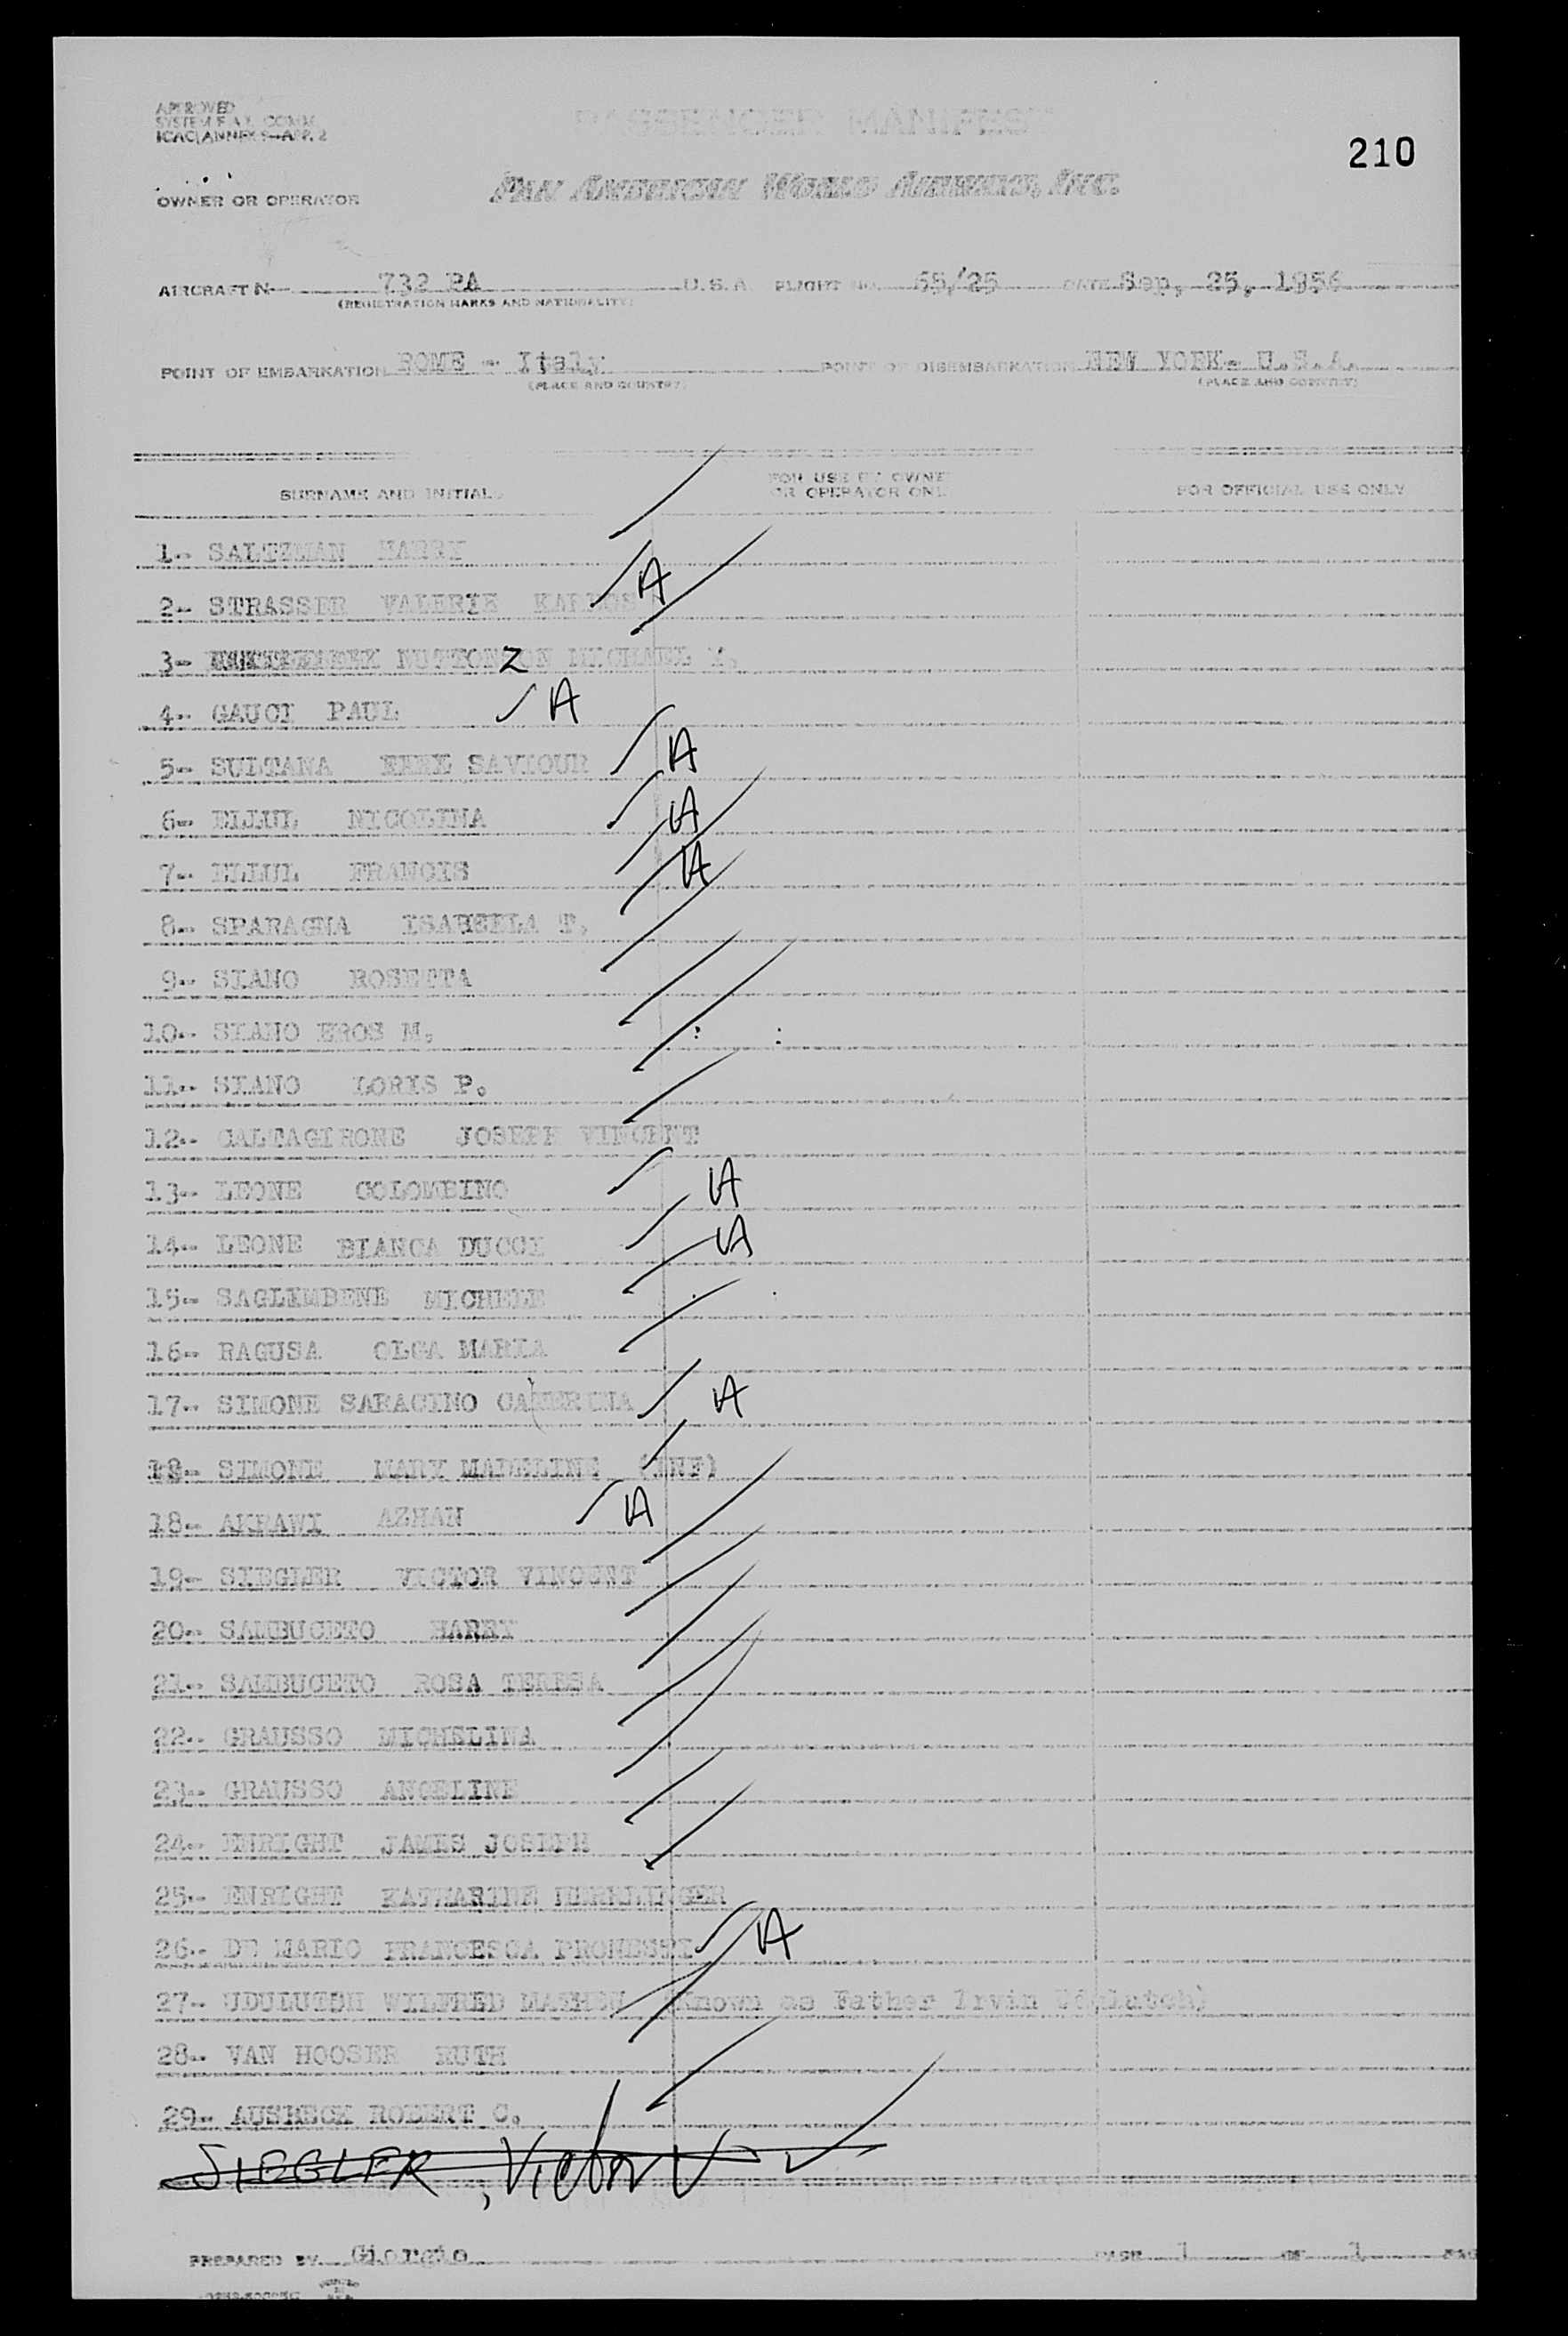 APPROVED
SYSTEM F.A.L. COMM.
ICAO ANNEX 9-APP. 2
PASSENGER MANIFEST
210
OWNER OR OPERATOR
PAN AMERICAN WORLD AIRWAYS, INC.
AIRCRAFT N 732 PA U.S.A. FLIGHT NO. 65/25 DATE Sep, 25, 1956
(REGISTRATION MARKS AND NATIONALITY)
POINT OF EMBARKATION ROME - Italy POINT OF DISEMBARKATION NEW YORK- U.S.A.
(PLACE AND COUNTRY) (PLACE AND COUNTRY)
SURNAME AND INITIAL FOR USE BY OWNER OR OPERATOR ONLY FOR OFFICIAL USE ONLY
1-- SALTZMAN HARRY
2-- STRASSER VALERIE A
3-- NUTTONSON MICHAEL Y. Z
4-- GAUCI PAUL A
5-- SULTANA SAVIOUR A
6-- ELLUL NICOLINA A
7-- ELLUL FRANCIS A
8-- SPARAGNA ISABELLA T.
9-- SIANO ROSETTA
10-- SIANO EROS M.
11-- SIANO LORIS P.
12-- CALTAGIRONE JOSEPH VINCENT
13-- LEONE COLOMBINO A
14-- LEONE BIANCA DUCCI A
15-- SAGLIMBENE MICHELE
16-- RAGUSA OLGA MARIA
17-- SIMONE SARACINO CATERINA A
SIMONE MARY MADELINE (INF)
18-- AKRAWI AZHAN A
19-- SIEGLER VICTOR VINCENT
20-- SAMBUCETO HARRY
21-- SAMBUCETO ROSA TERESA
22-- GRAUSSO MICHELINA
23-- GRAUSSO ANGELINE
24-- ENRIGHT JAMES JOSEPH
25-- ENRIGHT KATHARINE
26-- DE MARIO FRANCESCA A
27-- UDULUTSH WILFRED (Known as Father Irvin Udulutch)
28-- VAN HOOSER RUTH
29-- ROBERT C.
SIEGLER, Victor V
PREPARED BY Giorgio PAGE 1 OF 1